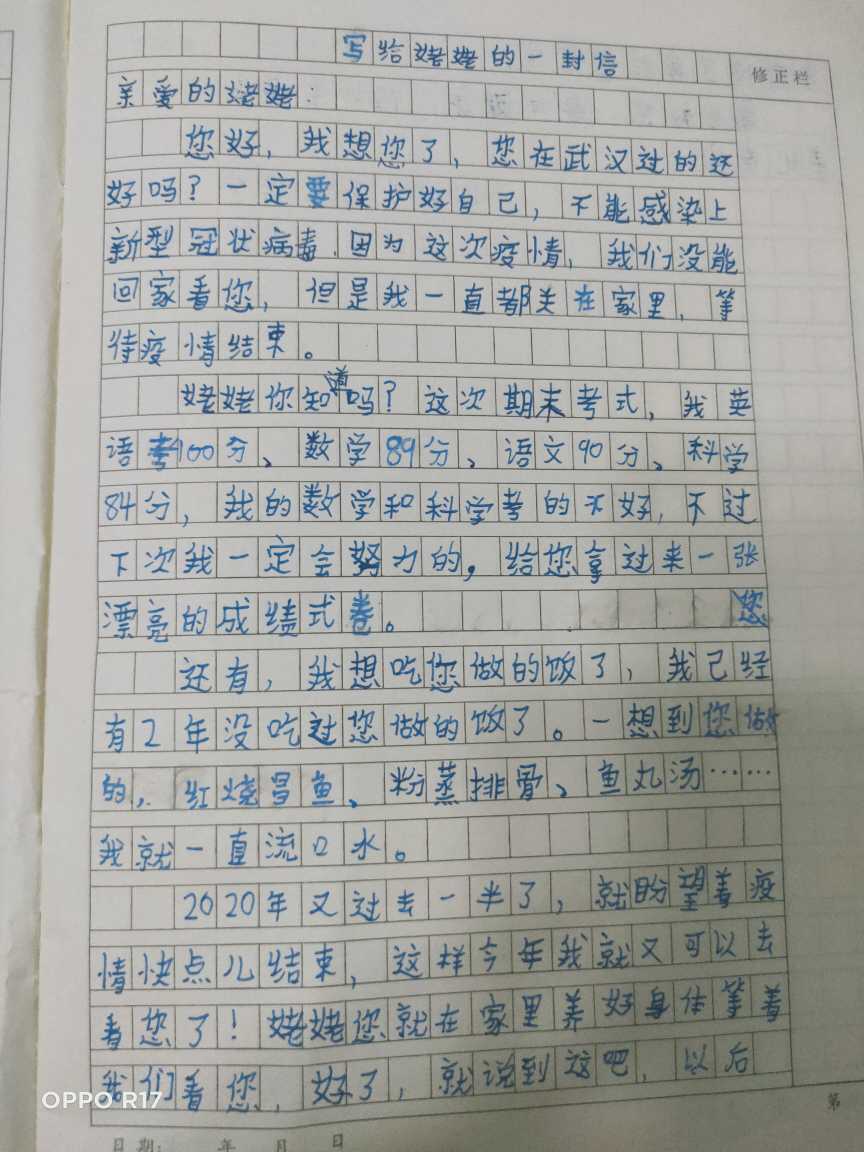 写给姥姥的一封信
修正栏
亲爱的姥姥:
您好,我想您了,您在武汉过的还
好吗?一定要保护好自己,不能感染上
新型冠状病毒.因为这次疫情,我们没能
回家看您,但是我一直都关在家里,等
待疫情结束。
姥姥你知道吗?这次期末考式,我英
语考100分、数学89分、语文90分、科学
84分,我的数学和科学考的不好,不过
下次我一定会努力的,给您拿过来一张
漂亮的成绩式卷。 您
还有,我想吃您做的饭了,我已经
有2年没吃过您做的饭了。一想到您做
的,红烧昌鱼、粉蒸排骨、鱼丸汤……
我就一直流口水。
2020年又过去一半了,就盼望着疫
情快点儿结束,这样今年我就又可以去
看您了!姥姥您就在家里养好身体等着
我们看您,好了,就说到这吧,以后
OPPO R17
第
日期: 年 月 日